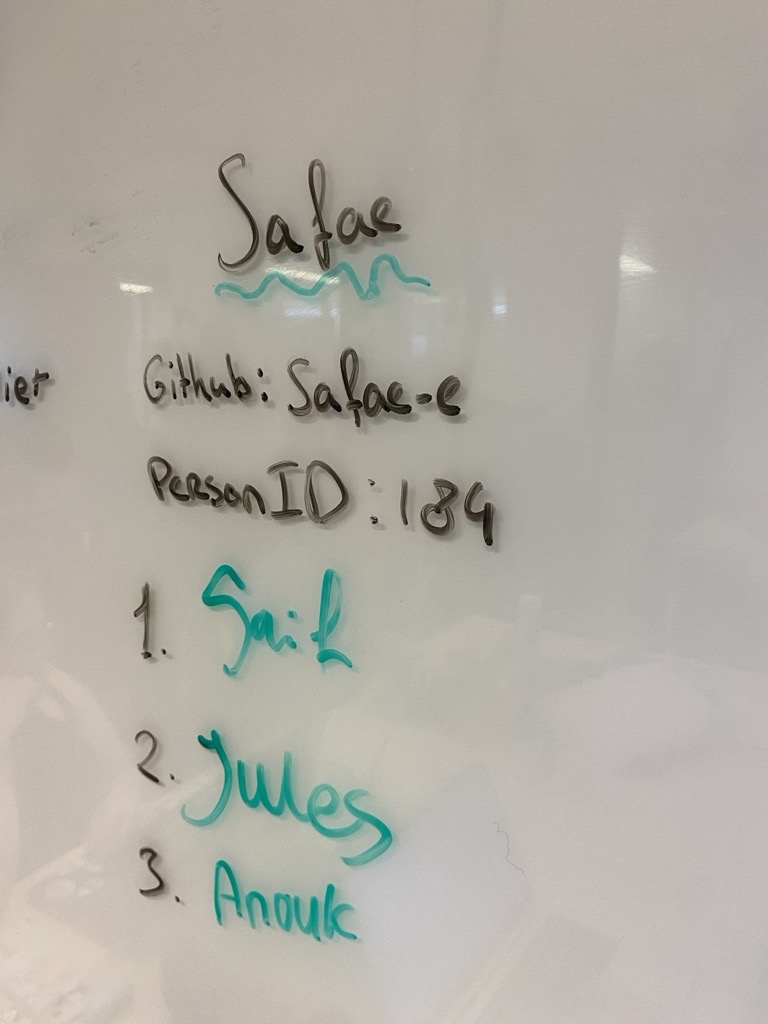 Safae
ier
Github: Safae-e
PersonID: 184
1. Saif
2. Jules
3. Anouk